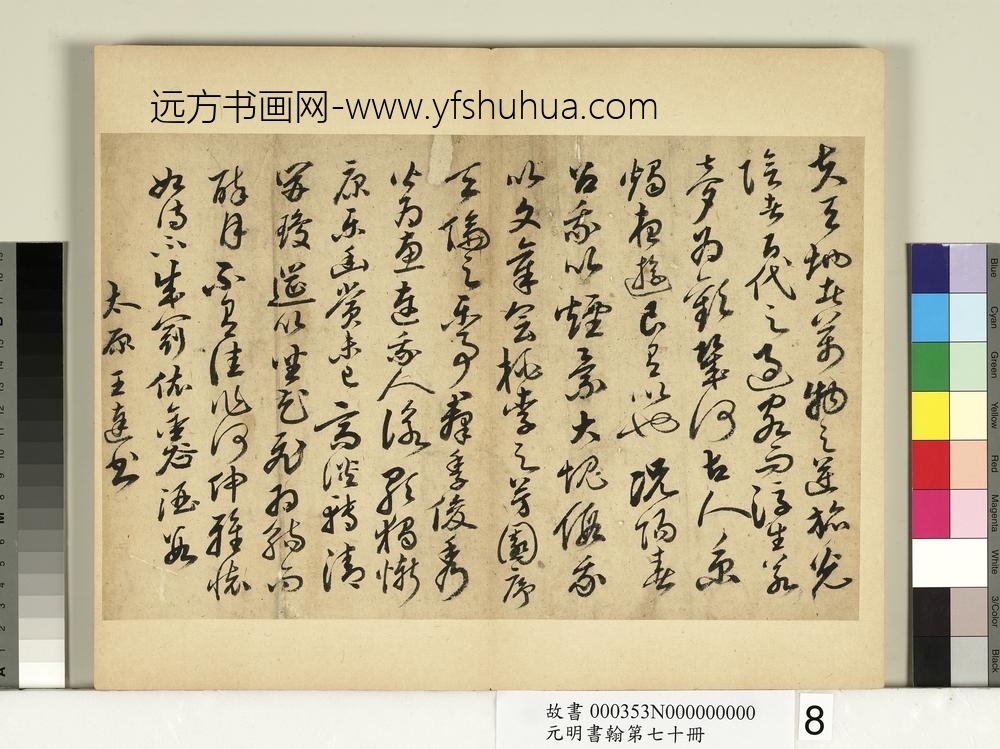 远方书画网-www.yfshuhua.com
夫天地者萬物之逆旅光
陰者百代之過客而浮生若
夢為歡幾何古人秉
燭夜遊良有以也況陽春
召我以煙景大塊假我
以文章會桃李之芳園序
天倫之樂事群季俊秀
皆為惠連吾人詠歌獨慚
康樂幽賞未已高談轉清
開瓊筵以坐花飛羽觴而
醉月不有佳作何伸雅懷
如詩不成罰依金谷酒數
太原王達書
Blue
Cyan
Green
Yellow
Red
Magenta
White
3/Color
Black
故書 000353N000000000
元明書翰第七十冊
8